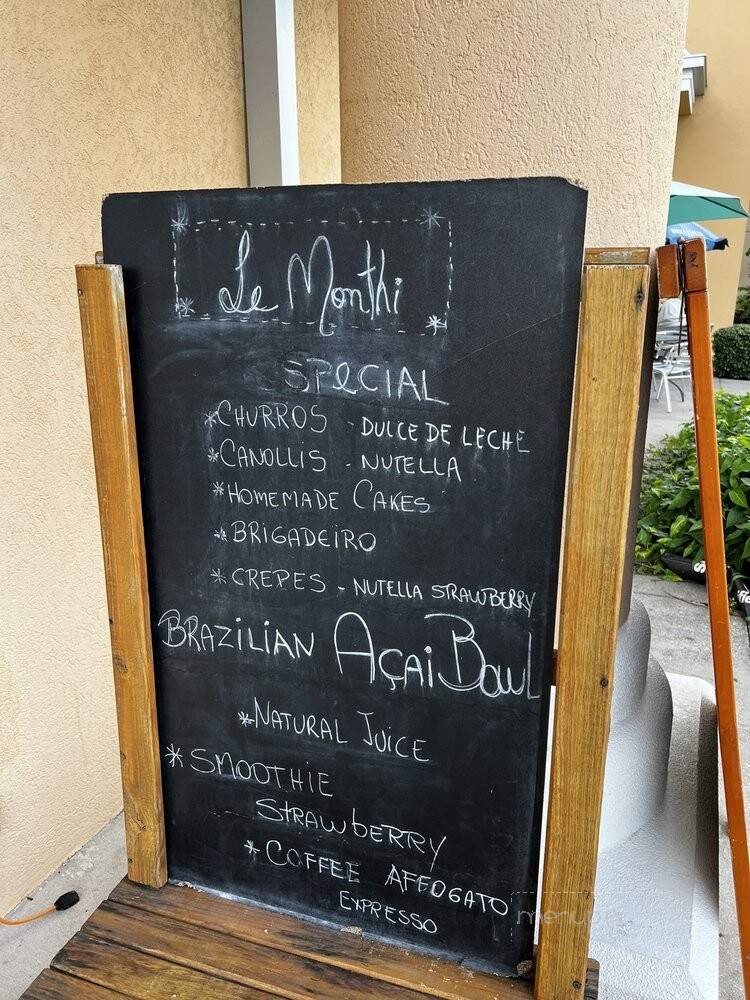 Le Monthi
SPECIAL
*CHURROS - DULCE DE LECHE
*CANOLLIS - NUTELLA
*HOMEMADE CAKES
*BRIGADEIRO
*CREPES - NUTELLA STRAWBERRY
BRAZILIAN AÇAI BOWL
*NATURAL JUICE
*SMOOTHIE
STRAWBERRY
*COFFEE AFFOGATO
EXPRESSO